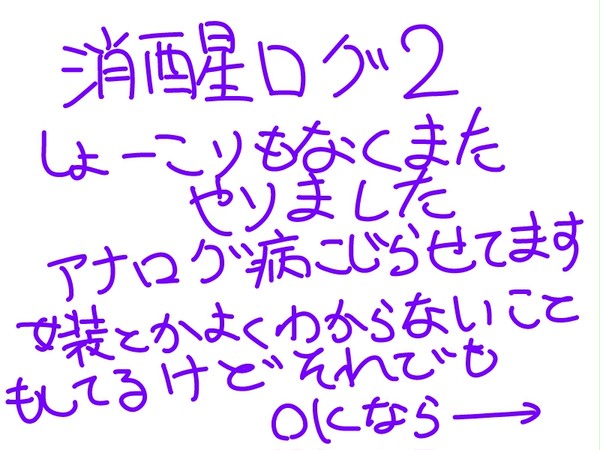 消酉星ログ2
しょーこりもなくまた
やりました
アナログ病こじらせてます
女装とかよくわからないこと
もしてるけどそれでも
OKなら→